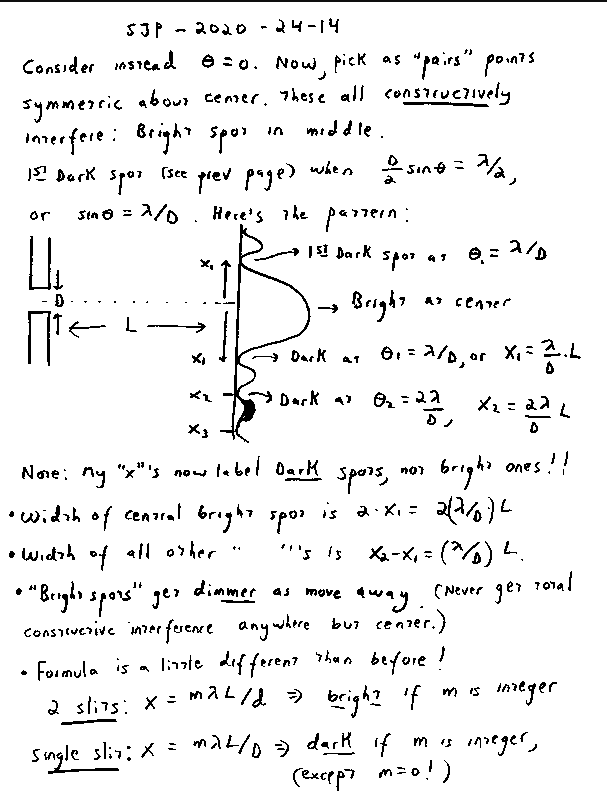 SJP - 2020 - 24-14
Consider instead θ=0. Now, pick as "pairs" points
symmetric about center. These all constructively
interfere: Bright spot in middle.
1st Dark spot (see prev page) when D/2 sinθ = λ/2,
or sinθ = λ/D. Here's the pattern:
x₁ → 1st Dark spot at θ₁ = λ/D
D
→ Bright at center
← L →
x₁ → Dark at θ₁ = λ/D, or x₁ = λ/D · L
x₂ → Dark at θ₂ = 2λ/D, x₂ = 2λ/D L
x₃
Note: My "x"'s now label Dark spots, not bright ones!!
• Width of central bright spot is 2·x₁ = 2(λ/D)L
• Width of all other " " 's is x₂-x₁ = (λ/D) L.
• "Bright spots" get dimmer as move away. (Never get total
constructive interference anywhere but center.)
• Formula is a little different than before!
2 slits: x = mλL/d ⇒ bright if m is integer
Single slit: x = mλL/D ⇒ dark if m is integer,
(except m=0!)